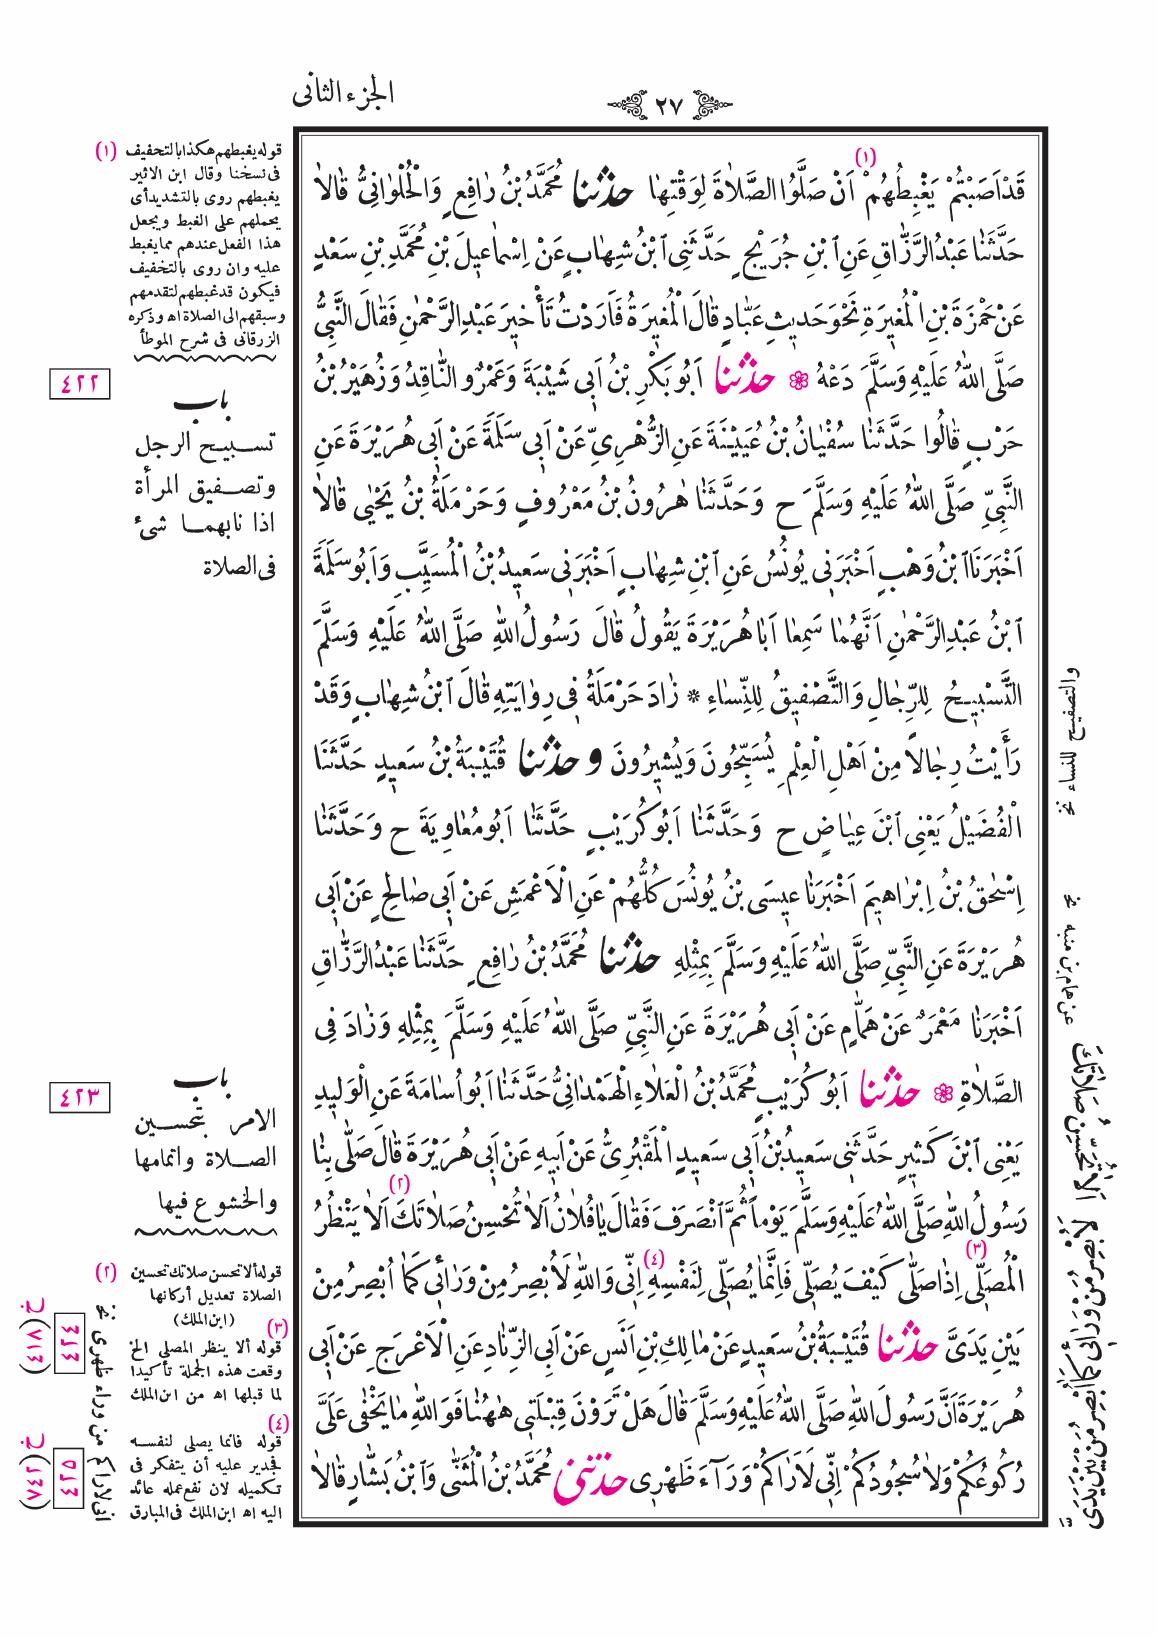 الجزء الثانى
٢٧
(١)
قَدْ اَصَبْتُمْ يَغْبِطُهُمْ اَنْ صَلَّوُا الصَّلَاةَ لِوَقْتِهَا حَدَّثَنَا مُحَمَّدُ بْنُ رَافِعٍ وَالْحُلْوَانِىُّ قَالَا
حَدَّثَنَا عَبْدُ الرَّزَّاقِ عَنِ ابْنِ جُرَيْجٍ حَدَّثَنِى ابْنُ شِهَابٍ عَنْ اِسْمَاعِيلَ بْنِ مُحَمَّدِ بْنِ سَعْدٍ
عَنْ حَمْزَةَ بْنِ الْمُغِيرَةِ نَحْوَ حَدِيثِ عَبَّادٍ قَالَ الْمُغِيرَةُ فَاَرَدْتُ تَأْخِيرَ عَبْدِ الرَّحْمٰنِ فَقَالَ النَّبِىُّ
صَلَّى اللهُ عَلَيْهِ وَسَلَّمَ دَعْهُ ۞ حَدَّثَنَا اَبُو بَكْرِ بْنُ اَبِى شَيْبَةَ وَعَمْرٌو النَّاقِدُ وَزُهَيْرُ بْنُ
حَرْبٍ قَالُوا حَدَّثَنَا سُفْيَانُ بْنُ عُيَيْنَةَ عَنِ الزُّهْرِىِّ عَنْ اَبِى سَلَمَةَ عَنْ اَبِى هُرَيْرَةَ عَنِ
النَّبِىِّ صَلَّى اللهُ عَلَيْهِ وَسَلَّمَ ح وَحَدَّثَنَا هٰرُونُ بْنُ مَعْرُوفٍ وَحَرْمَلَةُ بْنُ يَحْيٰى قَالَا
اَخْبَرَنَا ابْنُ وَهْبٍ اَخْبَرَنِى يُونُسُ عَنِ ابْنِ شِهَابٍ اَخْبَرَنِى سَعِيدُ بْنُ الْمُسَيَّبِ وَاَبُو سَلَمَةَ
ابْنُ عَبْدِ الرَّحْمٰنِ اَنَّهُمَا سَمِعَا اَبَا هُرَيْرَةَ يَقُولُ قَالَ رَسُولُ اللهِ صَلَّى اللهُ عَلَيْهِ وَسَلَّمَ
التَّسْبِيحُ لِلرِّجَالِ وَالتَّصْفِيقُ لِلنِّسَاءِ * زَادَ حَرْمَلَةُ فِى رِوَايَتِهِ قَالَ ابْنُ شِهَابٍ وَقَدْ
رَأَيْتُ رِجَالًا مِنْ اَهْلِ الْعِلْمِ يُسَبِّحُونَ وَيُشِيرُونَ وحَدَّثَنَا قُتَيْبَةُ بْنُ سَعِيدٍ حَدَّثَنَا
الْفُضَيْلُ يَعْنِى ابْنَ عِيَاضٍ ح وَحَدَّثَنَا اَبُو كُرَيْبٍ حَدَّثَنَا اَبُو مُعَاوِيَةَ ح وَحَدَّثَنَا
اِسْحٰقُ بْنُ اِبْرَاهِيمَ اَخْبَرَنَا عِيسَى بْنُ يُونُسَ كُلُّهُمْ عَنِ الْاَعْمَشِ عَنْ اَبِى صَالِحٍ عَنْ اَبِى
هُرَيْرَةَ عَنِ النَّبِىِّ صَلَّى اللهُ عَلَيْهِ وَسَلَّمَ بِمِثْلِهِ حَدَّثَنَا مُحَمَّدُ بْنُ رَافِعٍ حَدَّثَنَا عَبْدُ الرَّزَّاقِ
اَخْبَرَنَا مَعْمَرٌ عَنْ هَمَّامٍ عَنْ اَبِى هُرَيْرَةَ عَنِ النَّبِىِّ صَلَّى اللهُ عَلَيْهِ وَسَلَّمَ بِمِثْلِهِ وَزَادَ فِى
الصَّلَاةِ ۞ حَدَّثَنَا اَبُو كُرَيْبٍ مُحَمَّدُ بْنُ الْعَلَاءِ الْهَمْدَانِىُّ حَدَّثَنَا اَبُو اُسَامَةَ عَنِ الْوَلِيدِ
يَعْنِى ابْنَ كَثِيرٍ حَدَّثَنِى سَعِيدُ بْنُ اَبِى سَعِيدٍ الْمَقْبُرِىُّ عَنْ اَبِيهِ عَنْ اَبِى هُرَيْرَةَ قَالَ صَلَّى بِنَا
(٢)
رَسُولُ اللهِ صَلَّى اللهُ عَلَيْهِ وَسَلَّمَ يَوْماً ثُمَّ انْصَرَفَ فَقَالَ يَا فُلَانُ اَلَا تُحْسِنُ صَلَاتَكَ اَلَا يَنْظُرُ
(٣) (٤)
الْمُصَلِّى اِذَا صَلَّى كَيْفَ يُصَلِّى فَاِنَّمَا يُصَلِّى لِنَفْسِهِ اِنِّى وَاللهِ لَاُبْصِرُ مِنْ وَرَائِى كَمَا اُبْصِرُ مِنْ
بَيْنِ يَدَىَّ حَدَّثَنَا قُتَيْبَةُ بْنُ سَعِيدٍ عَنْ مَالِكِ بْنِ اَنَسٍ عَنْ اَبِى الزِّنَادِ عَنِ الْاَعْرَجِ عَنْ اَبِى
هُرَيْرَةَ اَنَّ رَسُولَ اللهِ صَلَّى اللهُ عَلَيْهِ وَسَلَّمَ قَالَ هَلْ تَرَوْنَ قِبْلَتِى هٰهُنَا فَوَاللهِ مَا يَخْفٰى عَلَىَّ
رُكُوعُكُمْ وَلَا سُجُودُكُمْ اِنِّى لَاَرَاكُمْ وَرَآءَ ظَهْرِى حَدَّثَنِى مُحَمَّدُ بْنُ الْمُثَنَّى وَابْنُ بَشَّارٍ قَالَا
(١) قوله يغبطهم هكذا بالتخفيف
فى نسخنا وقال ابن الاثير
يغبطهم روى بالتشديد أى
يحملهم على الغبط ويجعل
هذا الفعل عندهم مما يغبط
عليه وان روى بالتخفيف
فيكون قد غبطهم لتقدمهم
وسبقهم الى الصلاة اه وذكره
الزرقانى فى شرح الموطأ
٤٢٢
باب
تسبيح الرجل
وتصفيق المرأة
اذا نابهما شىء
فى الصلاة
٤٢٣
باب
الامر بتحسين
الصلاة واتمامها
والخشوع فيها
(٢) قوله ألا تحسن صلاتك تحسين
الصلاة تعديل أركانها
(ابن الملك)
(٣)
قوله ألا ينظر المصلى الخ
وقعت هذه الجملة تأكيدا
لما قبلها اه من ابن الملك
(٤)
قوله فانما يصلى لنفسه
فجدير عليه أن يتفكر فى
تكميله لان نفع عمله عائد
اليه اه ابن الملك فى المبارق
٤٢٤
خ (٤١٨)
٤٢٥
خ (٧٤٢)
انى لاراكم من وراء ظهرى نخ
والتصفيح للنساء نخ
عن همام بن منبه نخ
اَلَا تُحَسِّنُ صَلَاتَكَ
لَاُبْصِرُ مَنْ وَرَائِى كَمَا اُبْصِرُ مَنْ بَيْنَ يَدَىَّ